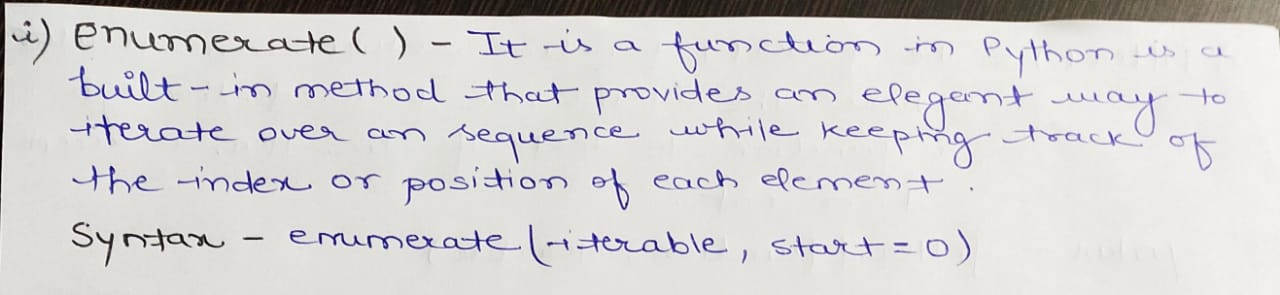 i) Enumerate() - It is a function in Python is a
built-in method that provides an elegant way to
iterate over an sequence while keeping track of
the index or position of each element.
Syntax - enumerate(iterable, start=0)